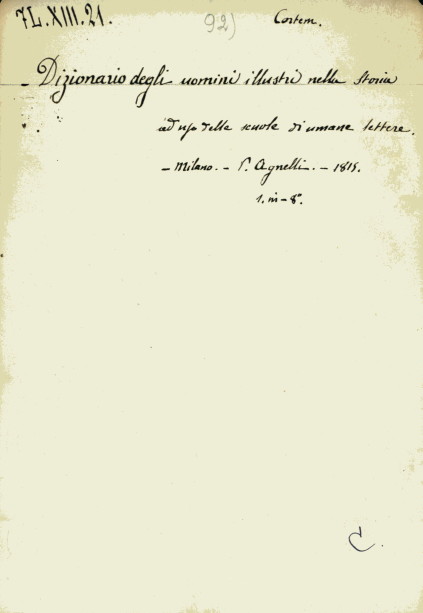 7L.XIII.21.
92)
Contem.
- Dizionario degli uomini illustri nella storia
ad uso delle scuole di umane lettere.
- Milano. - P. Agnelli. - 1815.
1. in - 8°.
C.